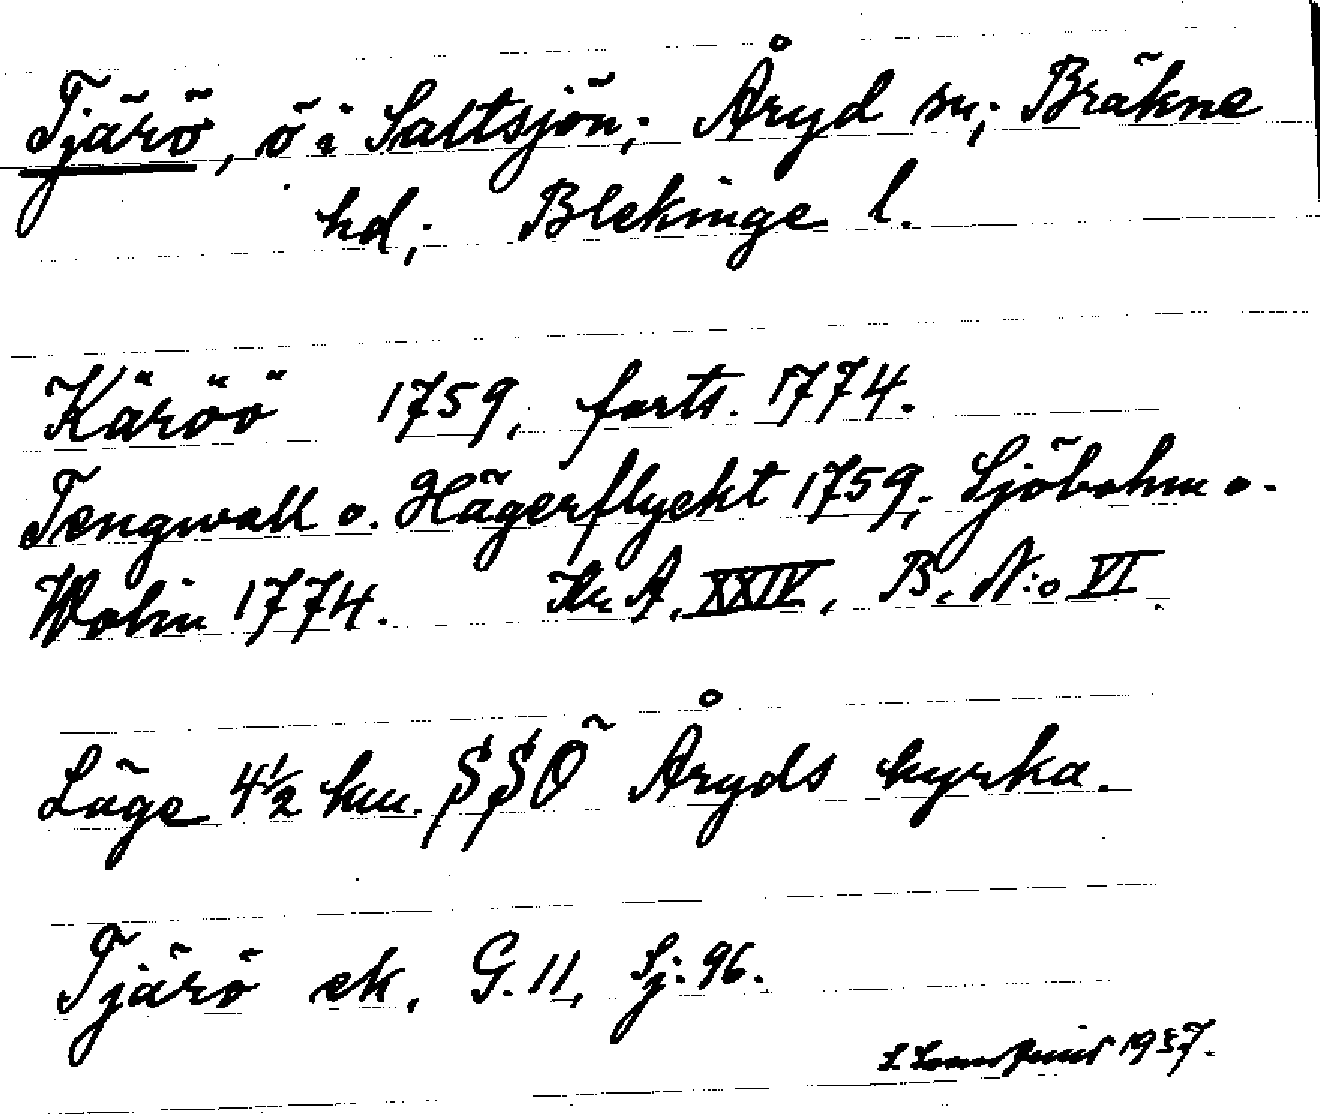 Tjärö, ö i Saltsjön; Åryd sn; Bräkne
hd; Blekinge l.
Käröö 1759, forts. 1774.
Tengwall o. Hägerflyckt 1759; Sjöbohm o.
Wolin 1774. Kr. A. XXIV, B. N:o VI.
Läge 4 1/2 km. SSÖ Åryds kyrka.
Tjärö ek. G. 11, Sj. 96.
1937.